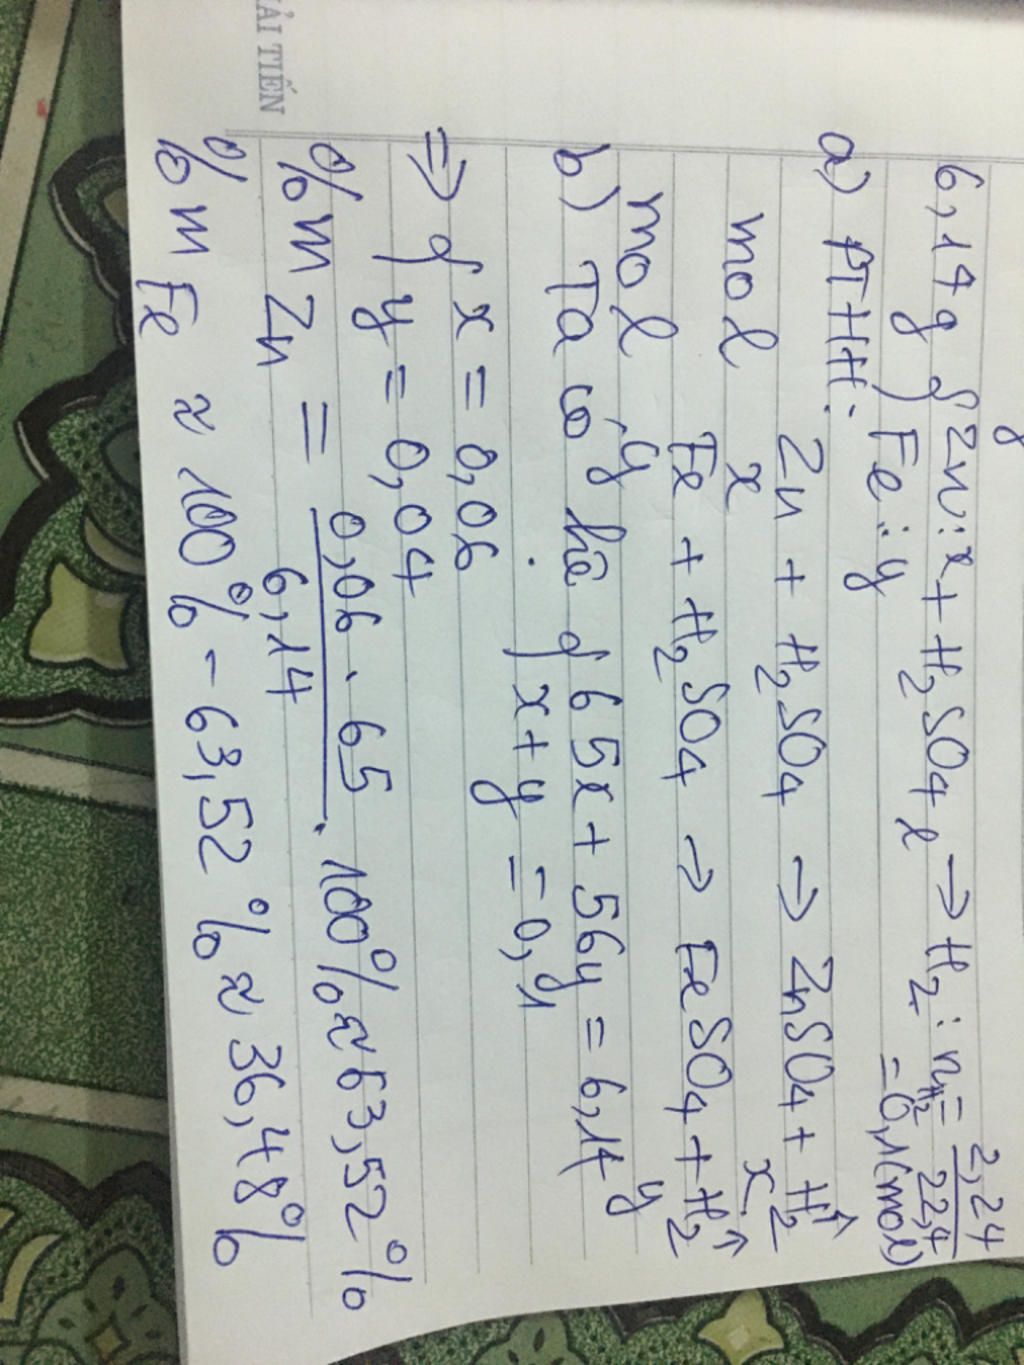 KẢI TIẾN
6,14 g { Zn: x + H2SO4 l → H2 : nH2 = 2,24/22,4
Fe: y = 0,1 (mol)
a) PTHH:
Zn + H2SO4 → ZnSO4 + H2↑
mol x x
Fe + H2SO4 → FeSO4 + H2↑
mol y y
b) Ta có hệ { 65x + 56y = 6,14
x + y = 0,1
⇒ { x = 0,06
y = 0,04
%m Zn = 0,06 . 65 / 6,14 . 100% ≈ 63,52%
%m Fe ≈ 100% - 63,52% ≈ 36,48%